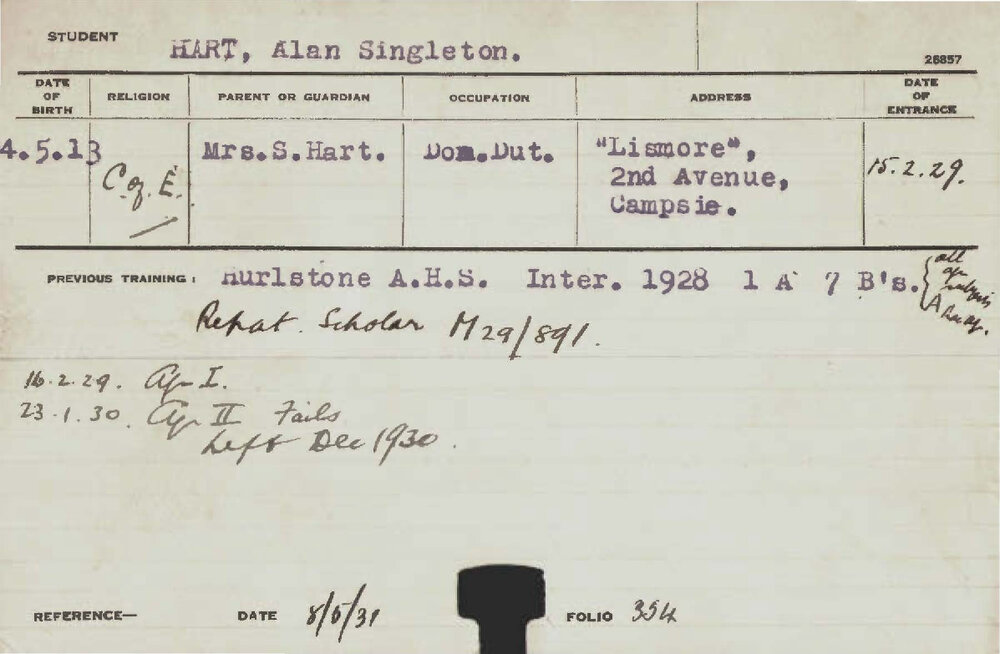 STUDENT HART, Alan Singleton. 26857
DATE OF BIRTH RELIGION PARENT OR GUARDIAN OCCUPATION ADDRESS DATE OF ENTRANCE
4.5.13 C. of. E. Mrs.S.Hart. Dom.Dut. "Lismore", 15.2.29.
2nd Avenue,
Campsie.
PREVIOUS TRAINING: Hurlstone A.H.S. Inter. 1928 1 A 7 B's.
Repat. Scholar M29/891.
16.2.29. Ag I.
23.1.30. Ag II Fails
Left Dec 1930.
REFERENCE— DATE 8/5/31 FOLIO 354